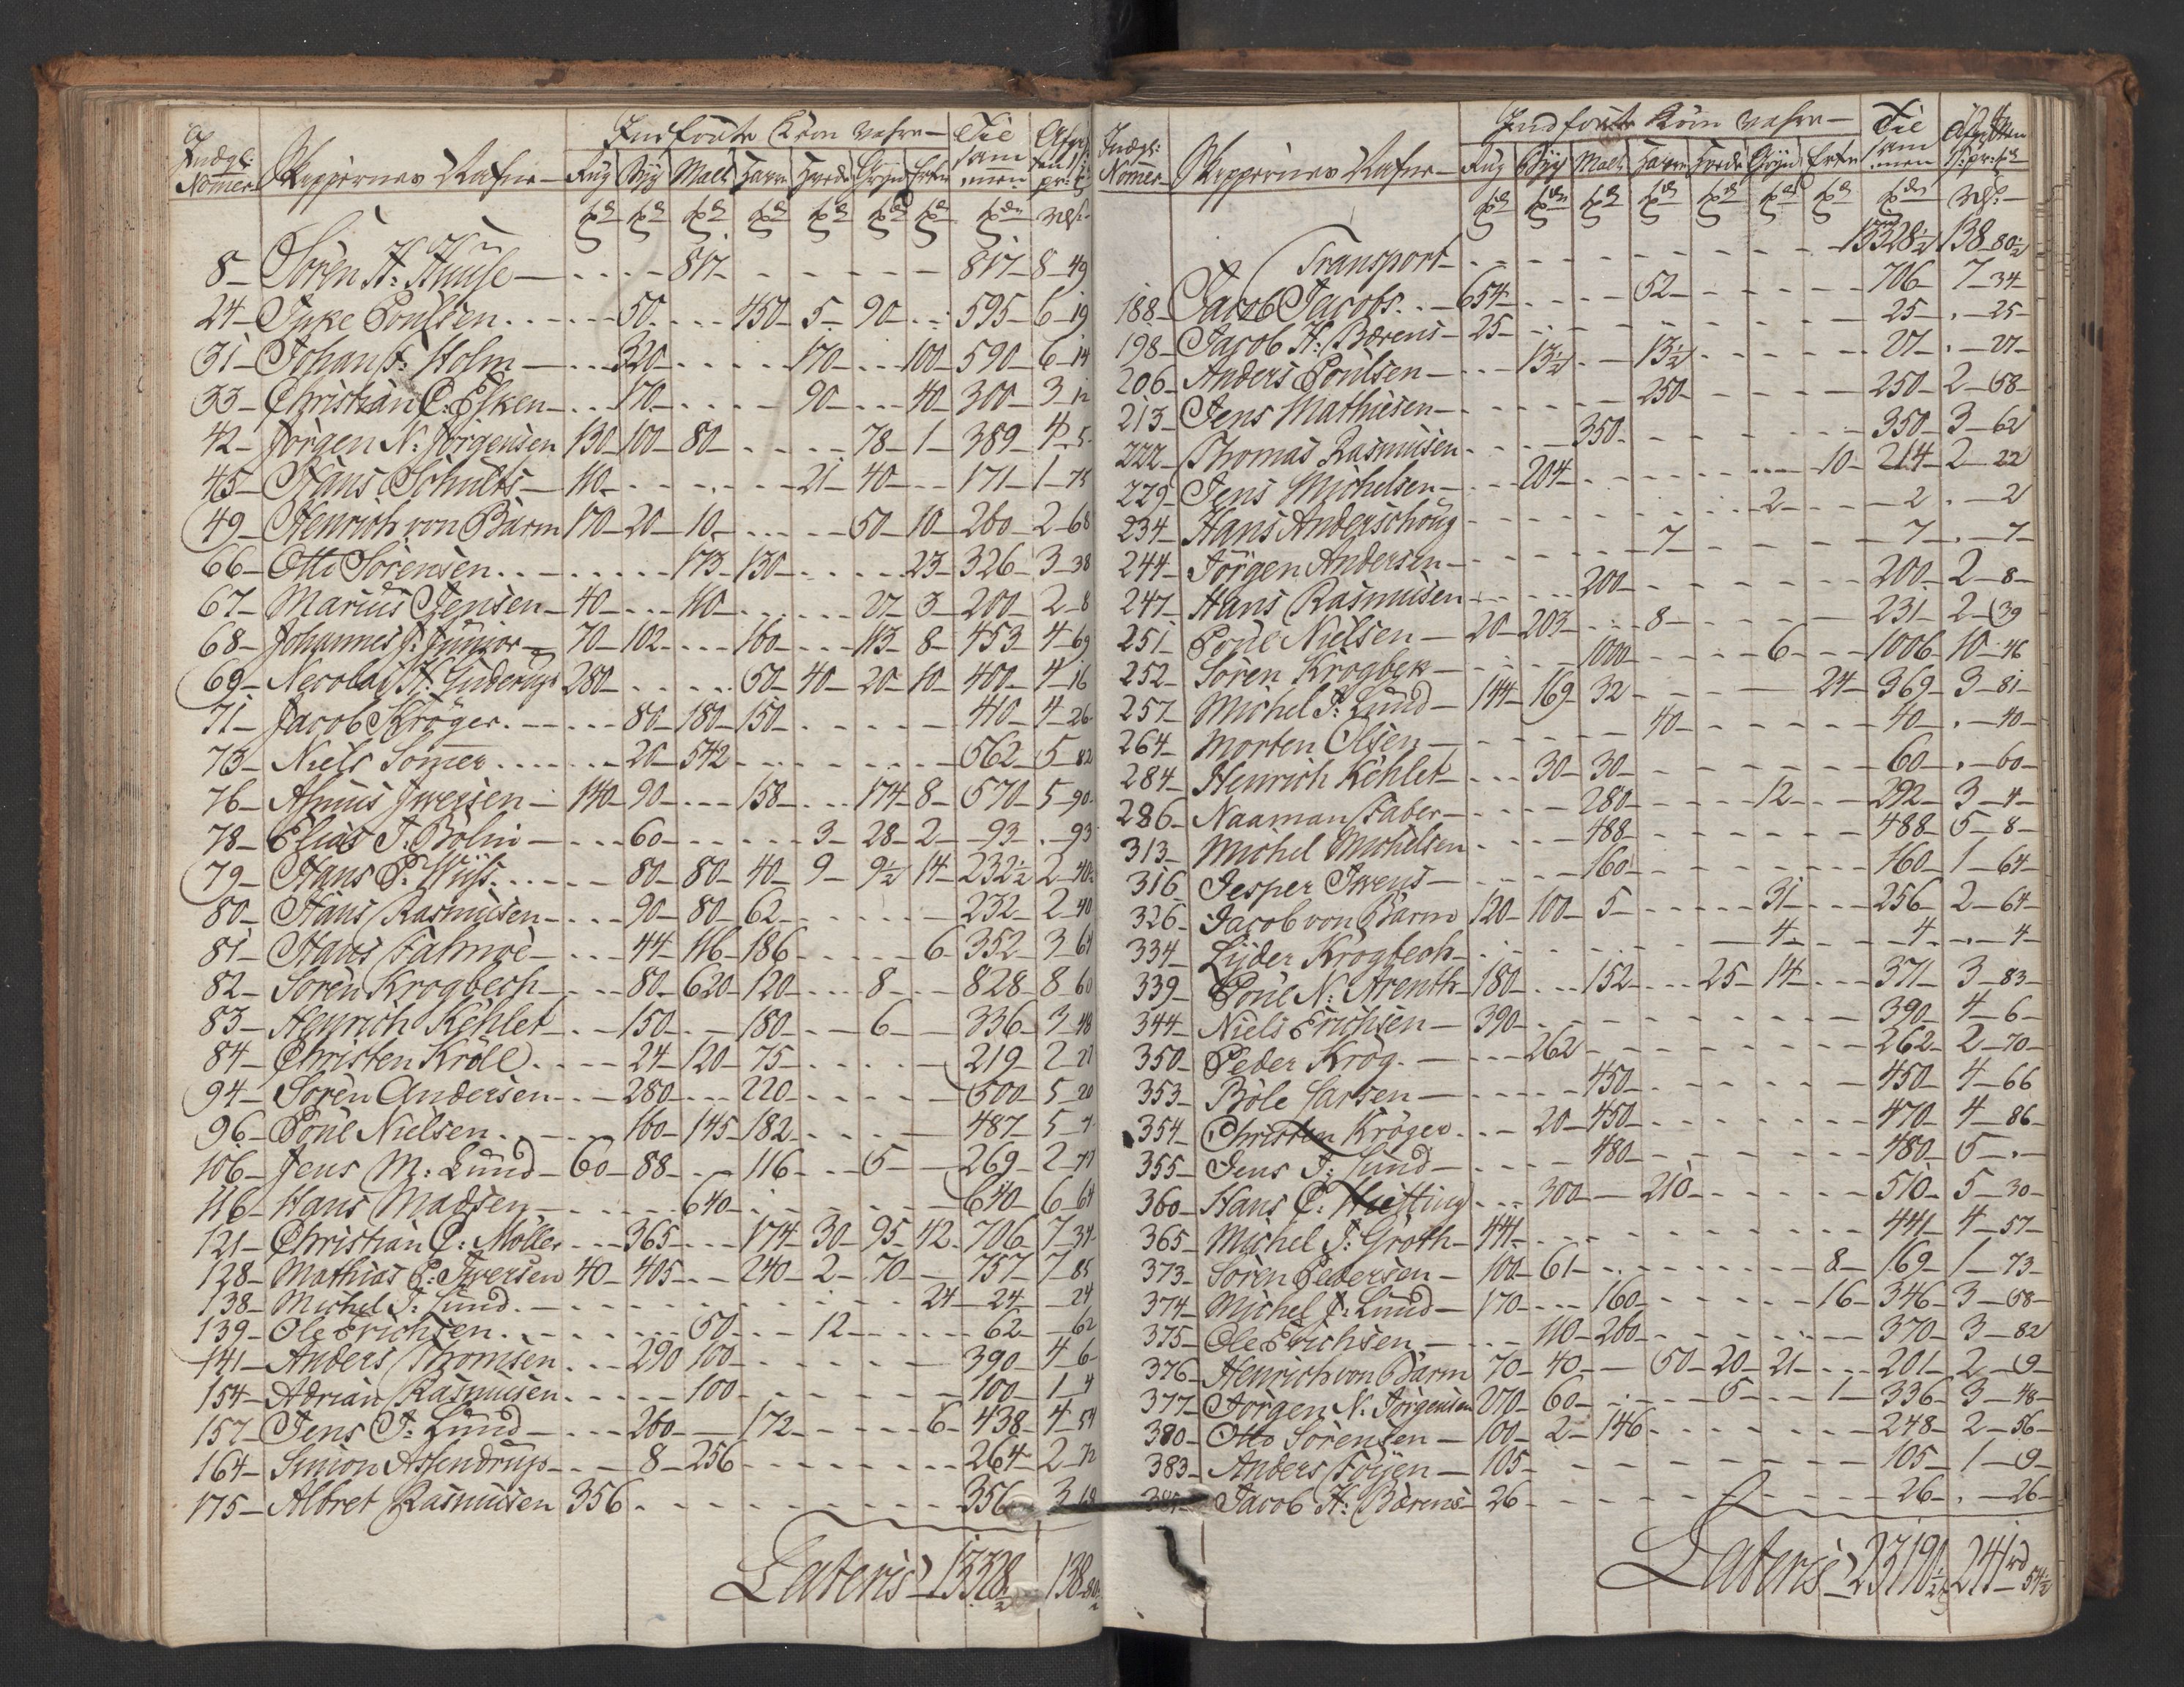 Indførte Korn Vahre — Til Afgivten
Indgl: Skippernes Nafne — Rug Byg Malt Havre Hvede Gryn Erter sam 1 s: 
Nomer men pr:
8 — Sören H: Huuse — 817 — 817 — 8 — 49
24 — Inke Poulsen — 50 — 450 — 5 — 90 — 595 — 6 — 19
31 — Johan F: Holm — 320 — 170 — 100 — 590 — 6 — 14
33 — Christian C: Esken — 170 — 90 — 40 — 300 — 3 — 12
42 — Jörgen N: Jörgensen 130 — 100 — 80 — 78 — 1 — 389 — 4 — 5
45 — Hans Schults — 110 — 21 — 40 — 171 — 1 — 75
49 — Henrich von Barm 170 — 20 — 10 — 50 — 10 — 260 — 2 — 68
66 — Otto Sörensen — 173 — 130 — 23 — 326 — 3 — 38
67 — Marius Jensen — 40 — 110 — 27 — 3 — 200 — 2 — 8
68 — Johannes J: Junior — 70 — 102 — 160 — 113 — 8 — 453 — 4 — 69
69 — Necolai H: Guderup 280 — 50 — 40 — 20 — 10 — 400 — 4 — 16
71 — Jacob Kröger — 80 — 180 — 150 — 410 — 4 — 26
73 — Niels Somer — 20 — 542 — 562 — 5 — 82
76 — Asmus Iwersen — 140 — 90 — 158 — 174 — 8 — 570 — 5 — 90
78 — Elias J: Bolm — 60 — 3 — 28 — 2 — 93 — . — 93
79 — Hans P: Wüs — 80 — 80 — 40 — 9 — 9½ — 14 — 232½ — 2 — 40
80 — Hans Rasmusen — 90 — 80 — 62 — 232 — 2 — 40
81 — Hans Falmöe — 44 — 116 — 186 — 6 — 352 — 3 — 64
82 — Sören Krogbech — 80 — 620 — 120 — 8 — 828 — 8 — 60
83 — Henrich Kehlet — 150 — 180 — 6 — 336 — 3 — 48
84 — Christen Kröll — 24 — 120 — 75 — 219 — 2 — 27
94 — Sören Andersen — 280 — 220 — 500 — 5 — 20
96 — Poul Nielsen — 160 — 145 — 182 — 487 — 5 — 7
106 — Jens M: Lund — 60 — 88 — 116 — 5 — 269 — 2 — 77
116 — Hans Madsen — 640 — 640 — 6 — 64
121 — Christian C: Möller — 365 — 174 — 30 — 95 — 42 — 706 — 7 — 34
128 — Mathias P: Iwersen 40 — 405 — 240 — 2 — 70 — 757 — 7 — 85
138 — Michel J: Lund — 24 — 24 — 24
139 — Ole Erichsen — 50 — 12 — 62 — 62
141 — Anders Thomsen — 290 100 — 390 — 4 — 6
154 — Adrian Rasmusen — 100 — 100 — 1 — 4
157 — Jens J: Lund — 260 — 172 — 6 — 438 — 4 — 54
164 — Simon Assendrup — 8 — 256 — 264 — 2 — 72
175 — Albret Rasmusen 356 — 356 — 3
Lateris 13328½ 138 — 80½
Indførte Korn Vahre — Til Afgivten
Indgl: Skippernes Nafne — Rug Byg Malt Havre Hvede Gryn Erter sam 1 s: pr:
Nomer men
Transport — 13328½ 138 — 80½
188 — Jacob Jacobs — 654 — 52 — 706 — 7 — 34
198 — Jacob H: Bærens — 25 — 25 — . — 25
206 — Anders Poulsen — 13½ — 13½ — 27 — . — 27
213 — Jens Mathiesen — 250 — 250 — 2 — 58
222 — Thomas Rasmusen — 350 — 350 — 3 — 62
229 — Jens Michelsen — 204 — 10 — 214 — 2 — 22
234 — Hans Anderschoug — 2 — 2 — . — 2
244 — Jörgen Andersen — 7 — 7 — . — 7
247 — Hans Rasmusen — 200 — 200 — 2 — 8
251 — Poul Nielsen — 20 — 203 — 8 — 231 — 2 — 39
252 — Sören Krogbek — 1000 — 6 — 1006 — 10 — 46
257 — Michel J: Lund — 144 — 169 — 32 — 24 — 369 — 3 — 81
264 — Morten Olsen — 40 — 40 — . — 40
284 — Henrich Kehlet — 30 — 30 — 60 — . — 60
286 — Naaman Faber — 280 — 12 — 292 — 3 — 4
313 — Michel Michelsen — 488 — 488 — 5 — 8
316 — Jesper Iwens — 160 — 160 — 1 — 64
326 — Jacob von Barm 120 — 100 — 5 — 31 — 256 — 2 — 64
334 — Lyder Krogbech — 4 — 4 — . — 4
339 — Poul N: Arenth — 180 — 152 — 25 — 14 — 371 — 3 — 83
344 — Niels Erichsen — 390 — 390 — 4 — 6
350 — Peder Krog — 262 — 262 — 2 — 70
353 — Böle Larsen — 450 — 450 — 4 — 66
354 — Christen Kröger — 20 — 450 — 470 — 4 — 86
355 — Jens J: Lund — 480 — 480 — 5 — .
360 — Hans C: Hütting — 300 — 210 — 510 — 5 — 30
365 — Michel J: Groth — 441 — 441 — 4 — 57
373 — Sören Pedersen — 100 — 61 — 8 — 169 — 1 — 73
374 — Michel J: Lund — 170 — 160 — 16 — 346 — 3 — 58
375 — Ole Erichsen — 110 — 260 — 370 — 3 — 82
376 — Henrich von Barm 70 — 40 — 50 — 20 — 21 — 201 — 2 — 9
377 — Jörgen N: Jörgensen 270 — 60 — 5 — 1 — 336 — 3 — 48
380 — Otto Sörensen — 100 — 2 — 146 — 248 — 2 — 56
383 — Anders Foyen — 105 — 105 — 1 — 9
Jacob H: Bærens — 26 — 26 — . — 26
Lateris 23190½ 241 rd 54½